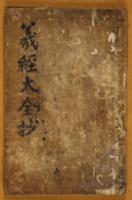 義經大全抄